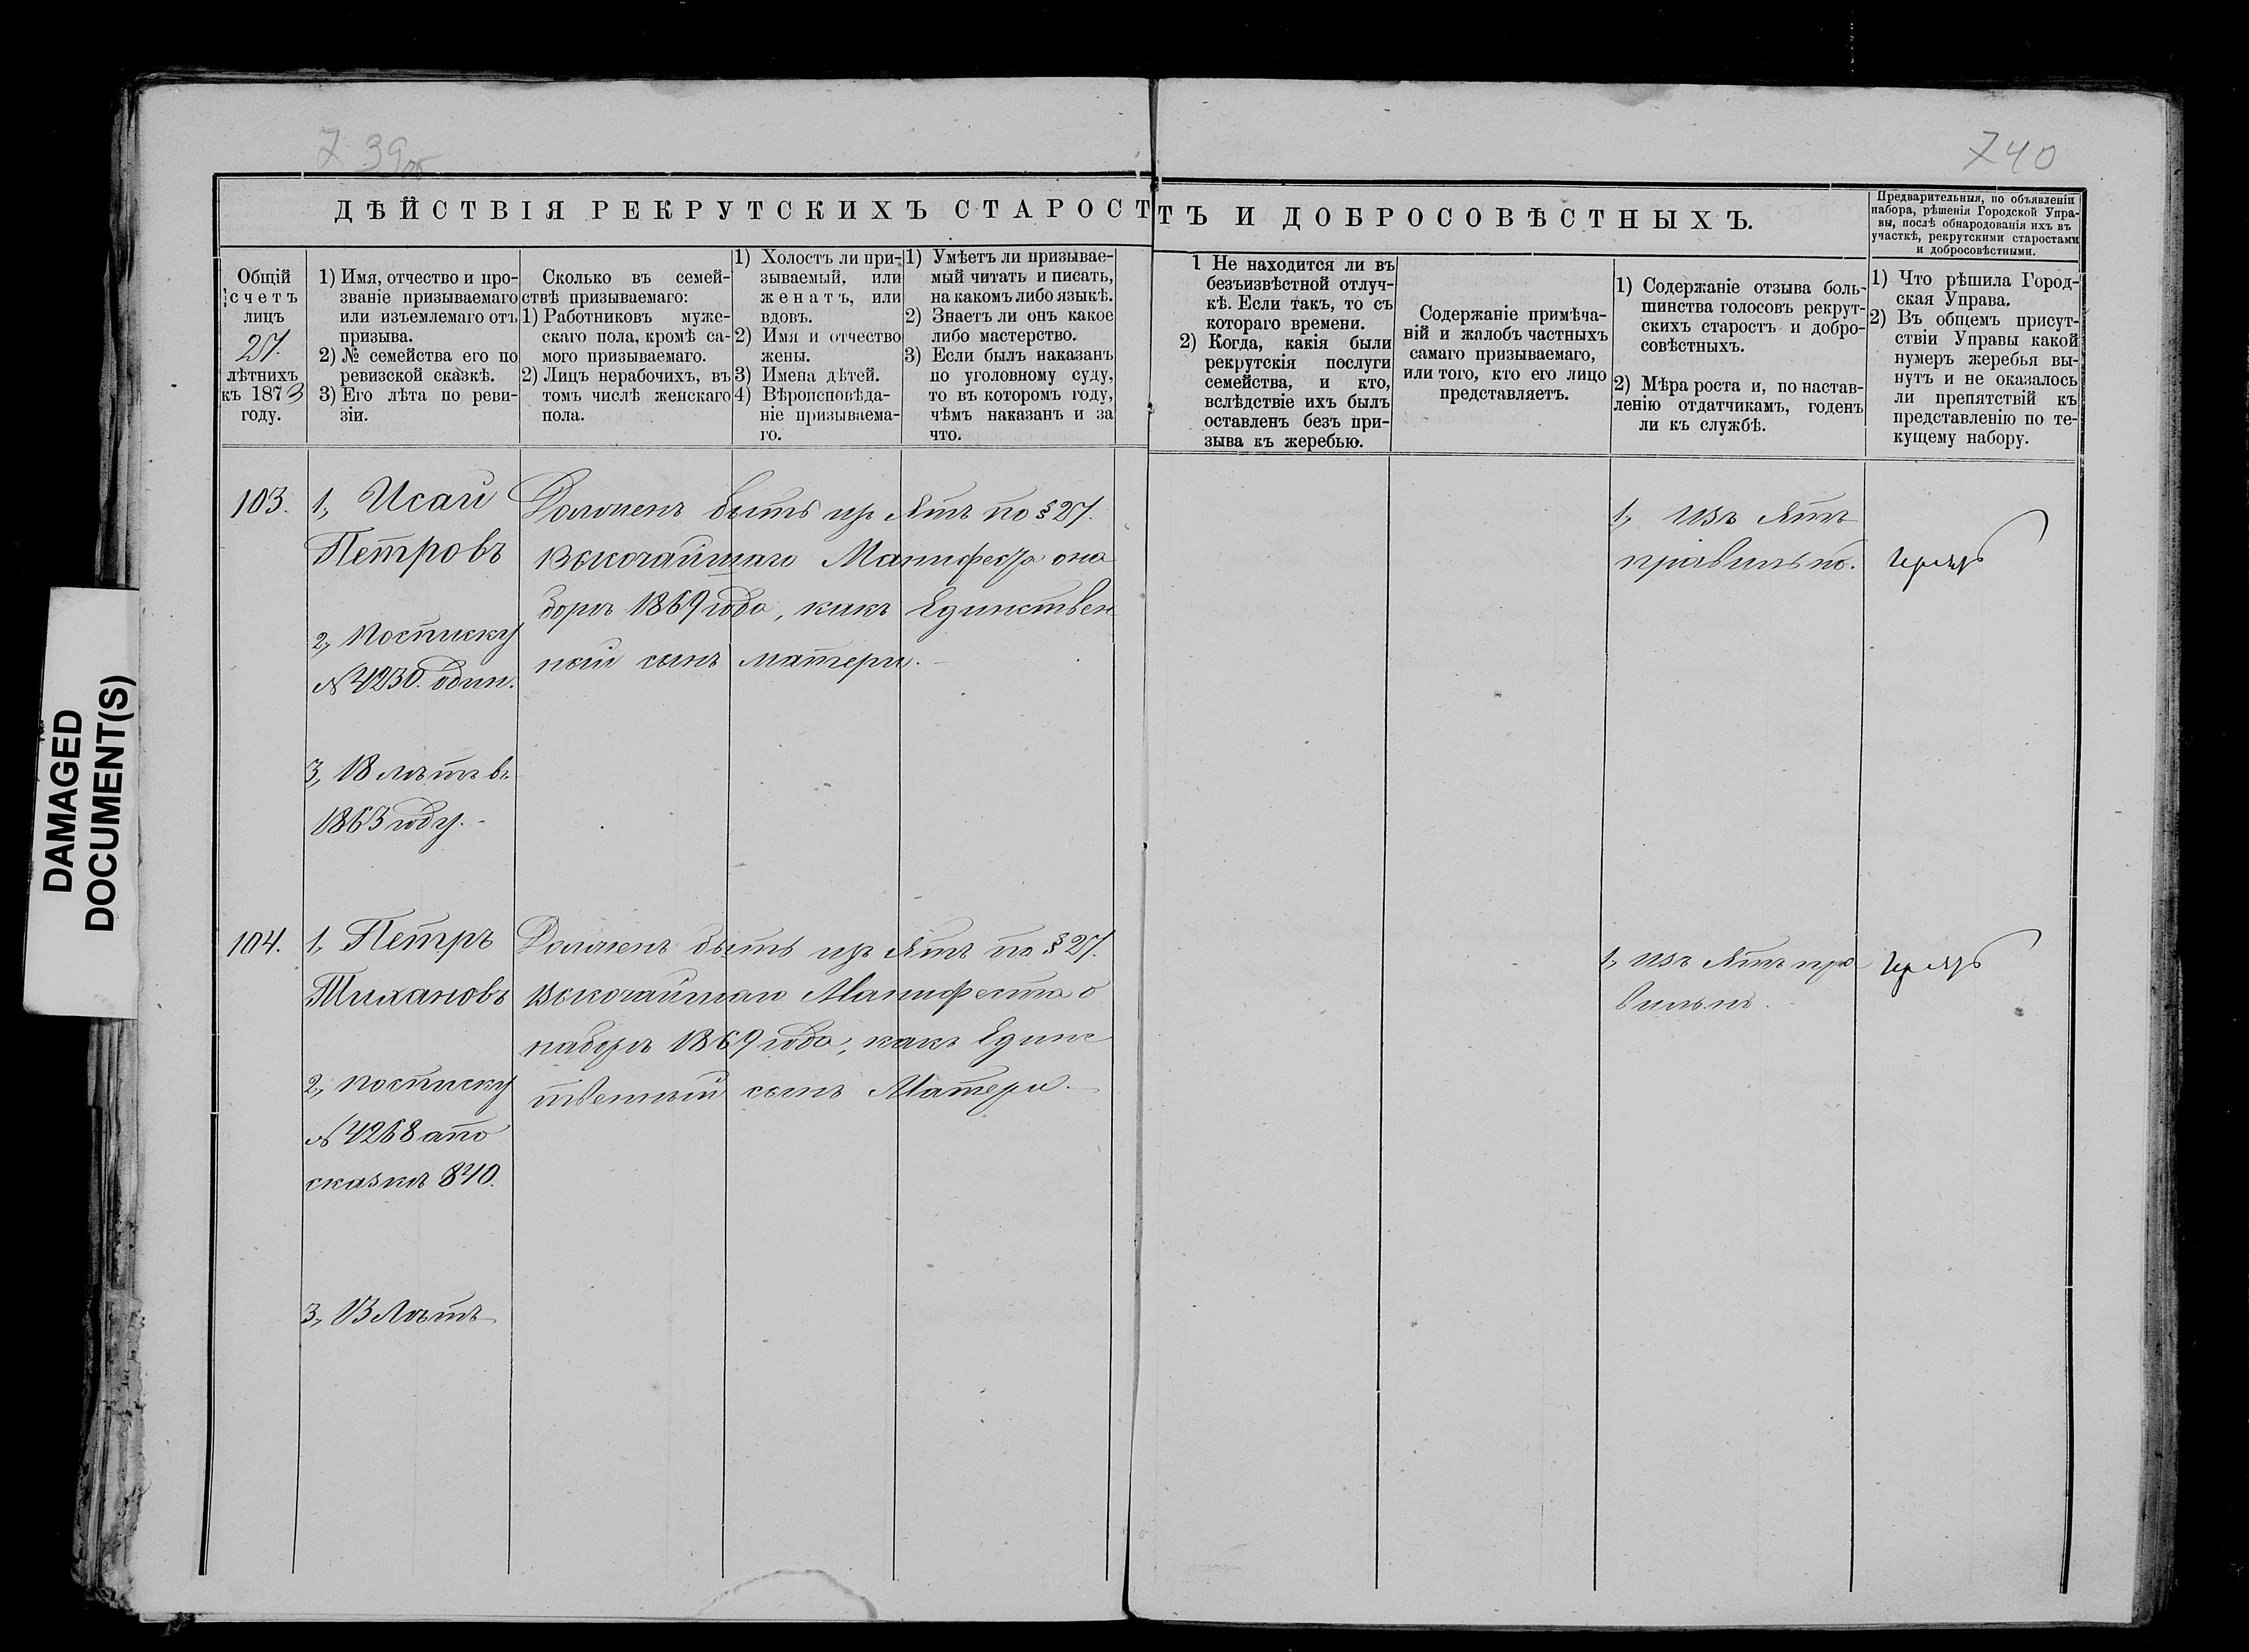 739об
740
ДѢЙСТВІЯ РЕКРУТСКИХЪ СТАРОСТ
ТЪ И ДОБРОСОВѢСТНЫХЪ.
Предварительныя, по объявленіи
набора, рѣшенія Городской Упра-
вы, послѣ обнародованія ихъ въ
участкѣ, рекрутскими старостами
и добросовѣстными.
Общій
счетъ
лицъ
27.
лѣтнихъ
къ 1873
году.
1) Имя, отчество и про-
званіе призываемаго
или изъемлемаго отъ
призыва.
2) № семейства его по
ревизской сказкѣ.
3) Его лѣта по реви-
зіи.
Сколько въ семей-
ствѣ призываемаго:
1) Работниковъ муже-
скаго пола, кромѣ са-
мого призываемаго.
2) Лицъ нерабочихъ, въ
томъ числѣ женскаго
пола.
1) Холостъ ли при-
зываемый, или
женатъ, или
вдовъ.
2) Имя и отчество
жены.
3) Имена дѣтей.
4) Вѣроисповѣда-
ніе призываема-
го.
1) Умѣетъ ли призывае-
мый читать и писать,
на какомъ либо языкѣ.
2) Знаетъ ли онъ какое
либо мастерство.
3) Если былъ наказанъ
по уголовному суду,
то въ которомъ году,
чѣмъ наказанъ и за
что.
1 Не находится ли въ
безъизвѣстной отлуч-
кѣ. Если такъ, то съ
котораго времени.
2) Когда, какія были
рекрутскія послуги
семейства, и кто,
вслѣдствіе ихъ былъ
оставленъ безъ при-
зыва къ жеребью.
Содержаніе примѣча-
ній и жалобъ частныхъ
самаго призываемаго,
или того, кто его лицо
представляетъ.
1) Содержаніе отзыва боль-
шинства голосовъ рекрут-
скихъ старостъ и добро-
совѣстныхъ.
2) Мѣра роста и, по настав-
ленію отдатчикамъ, годенъ
ли къ службѣ.
1) Что рѣшила Город-
ская Управа.
2) Въ общемъ присут-
ствіи Управы какой
нумеръ жеребья вы-
нутъ и не оказалось
ли препятствій къ
представленію по те-
кущему набору.
103.
1, Исай
Петровъ
2, по списку
№ 4230. один.
3, 18 лѣтъ въ
1863 году.-
Долженъ быть изъ Ятъ по § 27.
Высочайшаго Манифеста о на
борѣ 1869 года, какъ Единствен
ный сынъ матери.
1, изъ Ятъ
правильно.
104.
1, Петръ
Тихановъ
2, по списку
№ 4268 а по
сказкѣ 840.
3, 13 Лѣтъ
Долженъ быть изъ Ятъ по § 27.
Высочайшаго Манифеста о
наборѣ 1869 года, какъ Единс
твенный сынъ Матери.
1, изъ Ятъ пра
вильно.
DAMAGED
DOCUMENT(S)